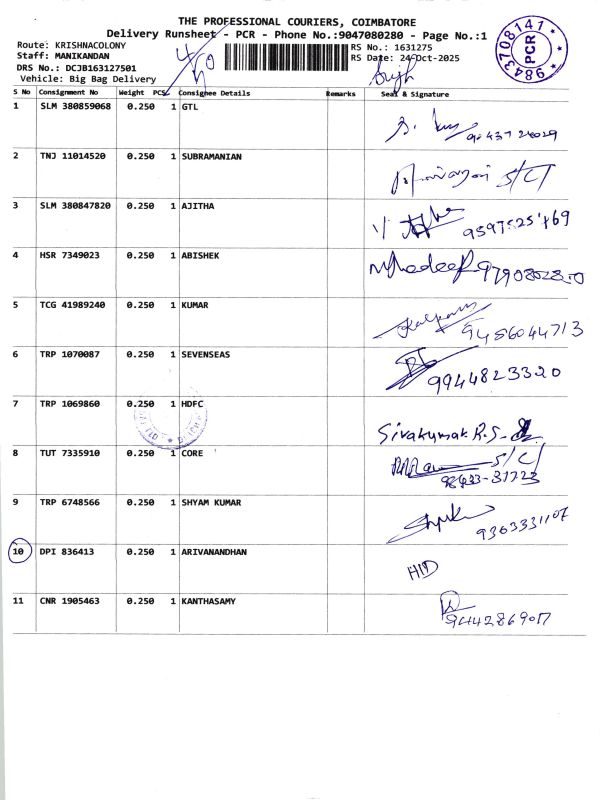 THE PROFESSIONAL COURIERS, COIMBATORE
Delivery Runsheet - PCR - Phone No.:9047080280 - Page No.:1
Route: KRISHNACOLONY
RS No.: 1631275
Staff: MANIKANDAN
RS Date: 24-Oct-2025
DRS No.: DCJB163127501
Vehicle: Big Bag Delivery
9843708141
PCR
S No Consignment No Weight PCS Consignee Details Remarks Seal & Signature
1 SLM 380859068 0.250 1 GTL
2 TNJ 11014520 0.250 1 SUBRAMANIAN
3 SLM 380847820 0.250 1 AJITHA
4 HSR 7349023 0.250 1 ABISHEK
5 TCG 41989240 0.250 1 KUMAR
9486044713
6 TRP 1070087 0.250 1 SEVENSEAS
9944823320
7 TRP 1069860 0.250 1 HDFC
Sivakumar R.S.
8 TUT 7335910 0.250 1 CORE
98433-31723
9 TRP 6748566 0.250 1 SHYAM KUMAR
9363331107
10 DPI 836413 0.250 1 ARIVANANDHAN
11 CNR 1905463 0.250 1 KANTHASAMY
9442869017